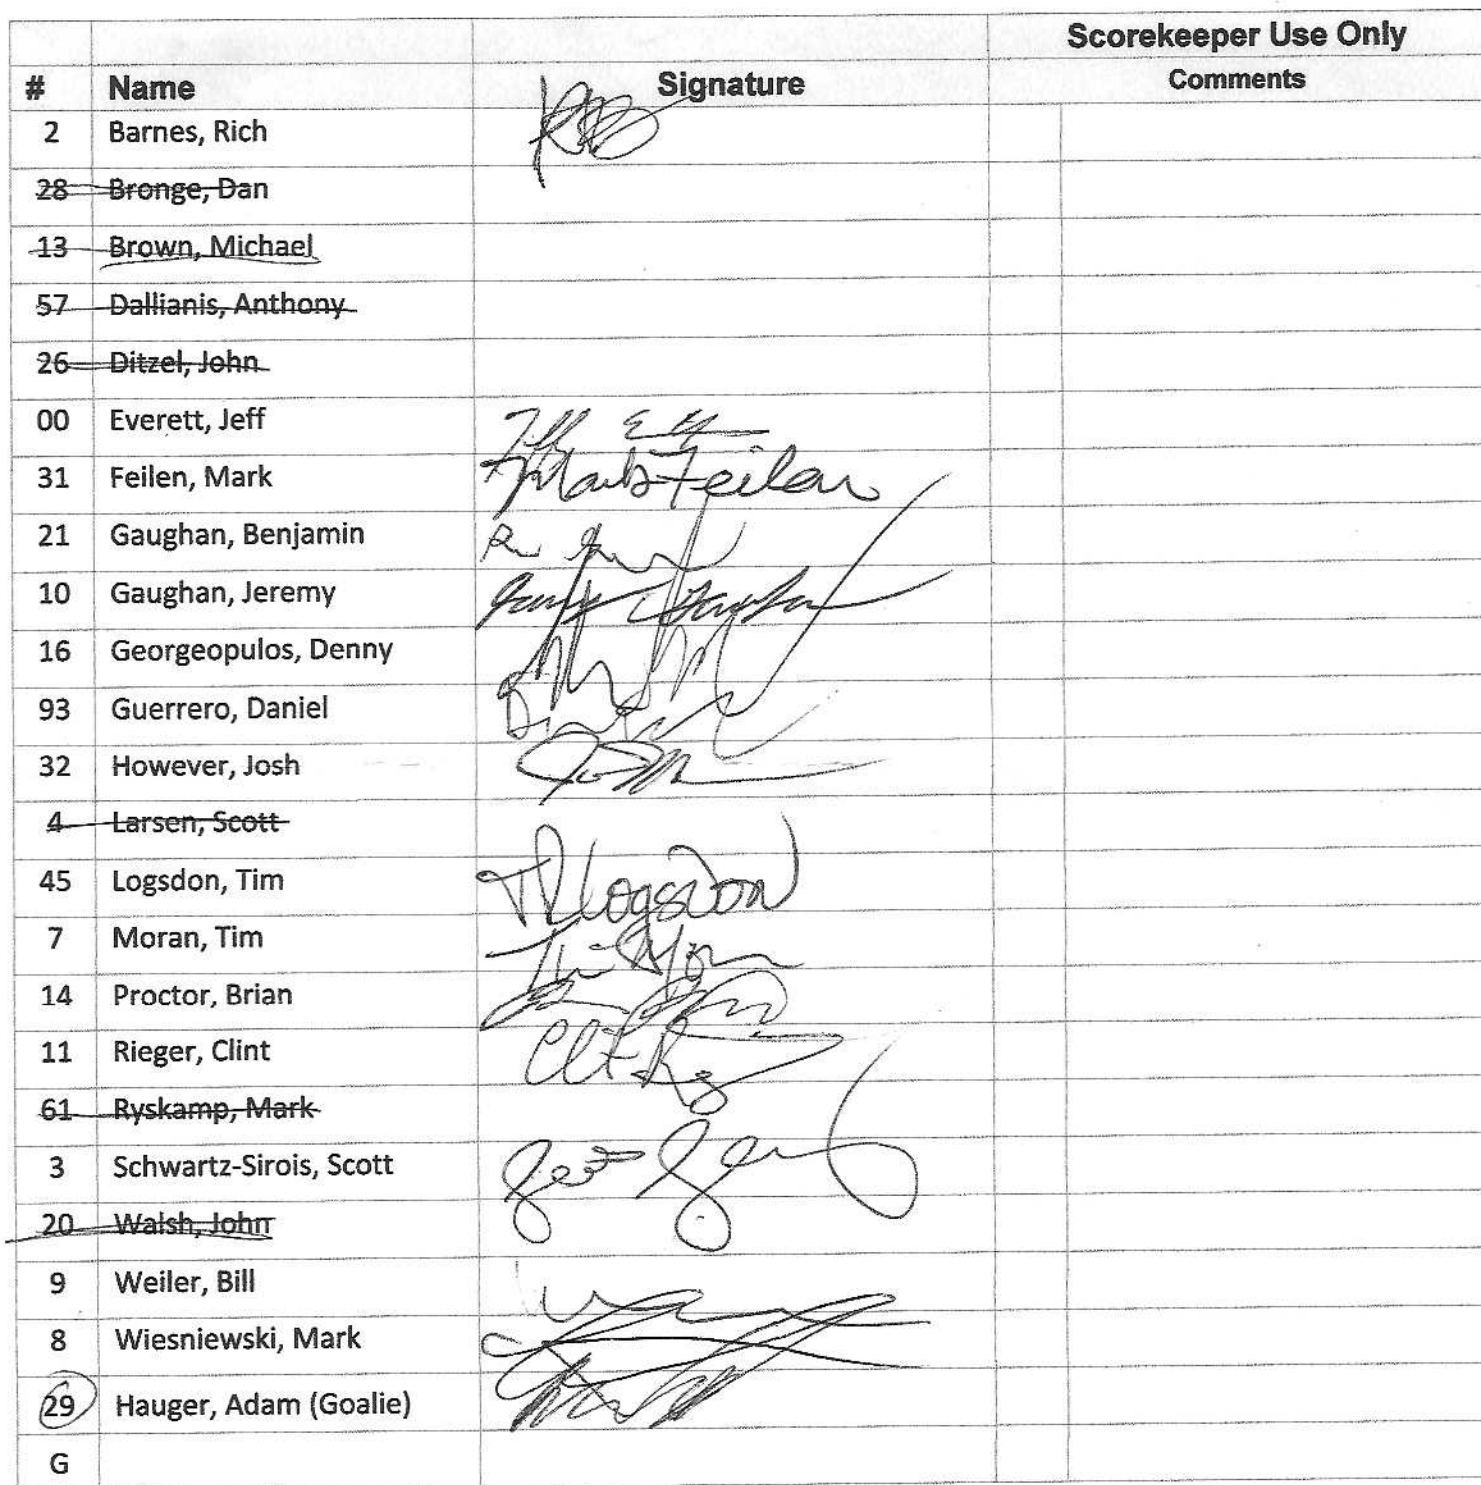 Scorekeeper Use Only
# Name Signature Comments
2 Barnes, Rich
28 Bronge, Dan
13 Brown, Michael
57 Dallianis, Anthony
26 Ditzel, John
00 Everett, Jeff
31 Feilen, Mark Mark Feilen
21 Gaughan, Benjamin
10 Gaughan, Jeremy
16 Georgeopulos, Denny
93 Guerrero, Daniel
32 However, Josh
4 Larsen, Scott
45 Logsdon, Tim Logsdon
7 Moran, Tim
14 Proctor, Brian
11 Rieger, Clint
61 Ryskamp, Mark
3 Schwartz-Sirois, Scott
20 Walsh, John
9 Weiler, Bill
8 Wiesniewski, Mark
29 Hauger, Adam (Goalie)
G